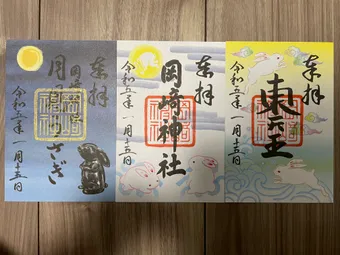 奉拝
東天王
令和五年一月十五日
奉拝
岡﨑神社
令和五年一月十五日
奉拝
うさぎ
令和五年一月十五日